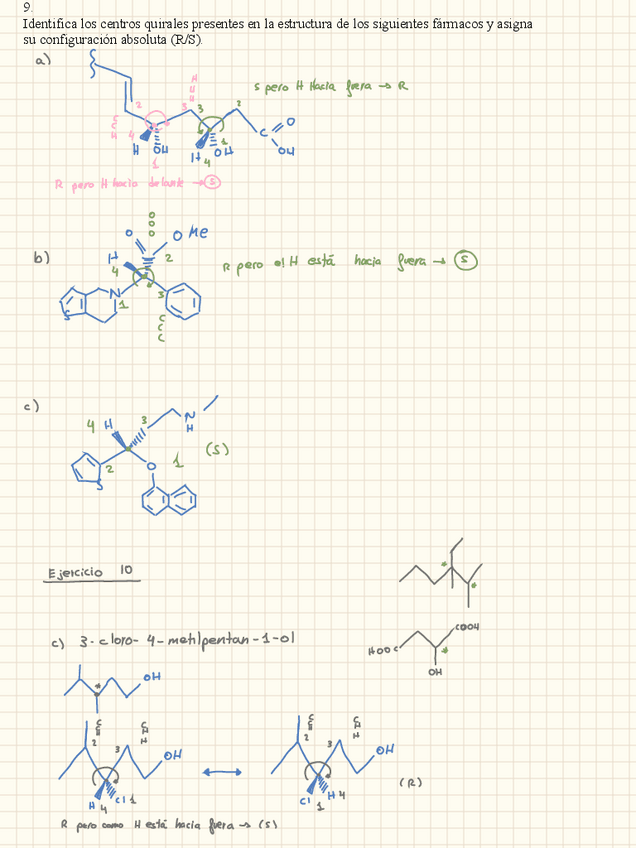 9.
Identifica los centros quirales presentes en la estructura de los siguientes fármacos y asigna
su configuración absoluta (R/S).
a)
H
H
S pero H Hacia fuera → R
2 3 3 2
C
C
H
4
H OH
1
H OH
4
C O
OH
R pero H hacia delante → S
b)
O
O
O
O O Me
H
4 2
N
1 3
S
C
C
C
R pero el H está hacia fuera → S
c)
4 H 3 N
H
2 O 1 (S)
S
Ejercicio 10
*
*
c) 3-cloro-4-metilpentan-1-ol
COOH
HOOC *
OH
* OH
C
C
H
2 3 OH
H Cl 1
4
C
C
H
2 3 OH
Cl H 4
1
(R)
R pero como H está hacia fuera → (S)